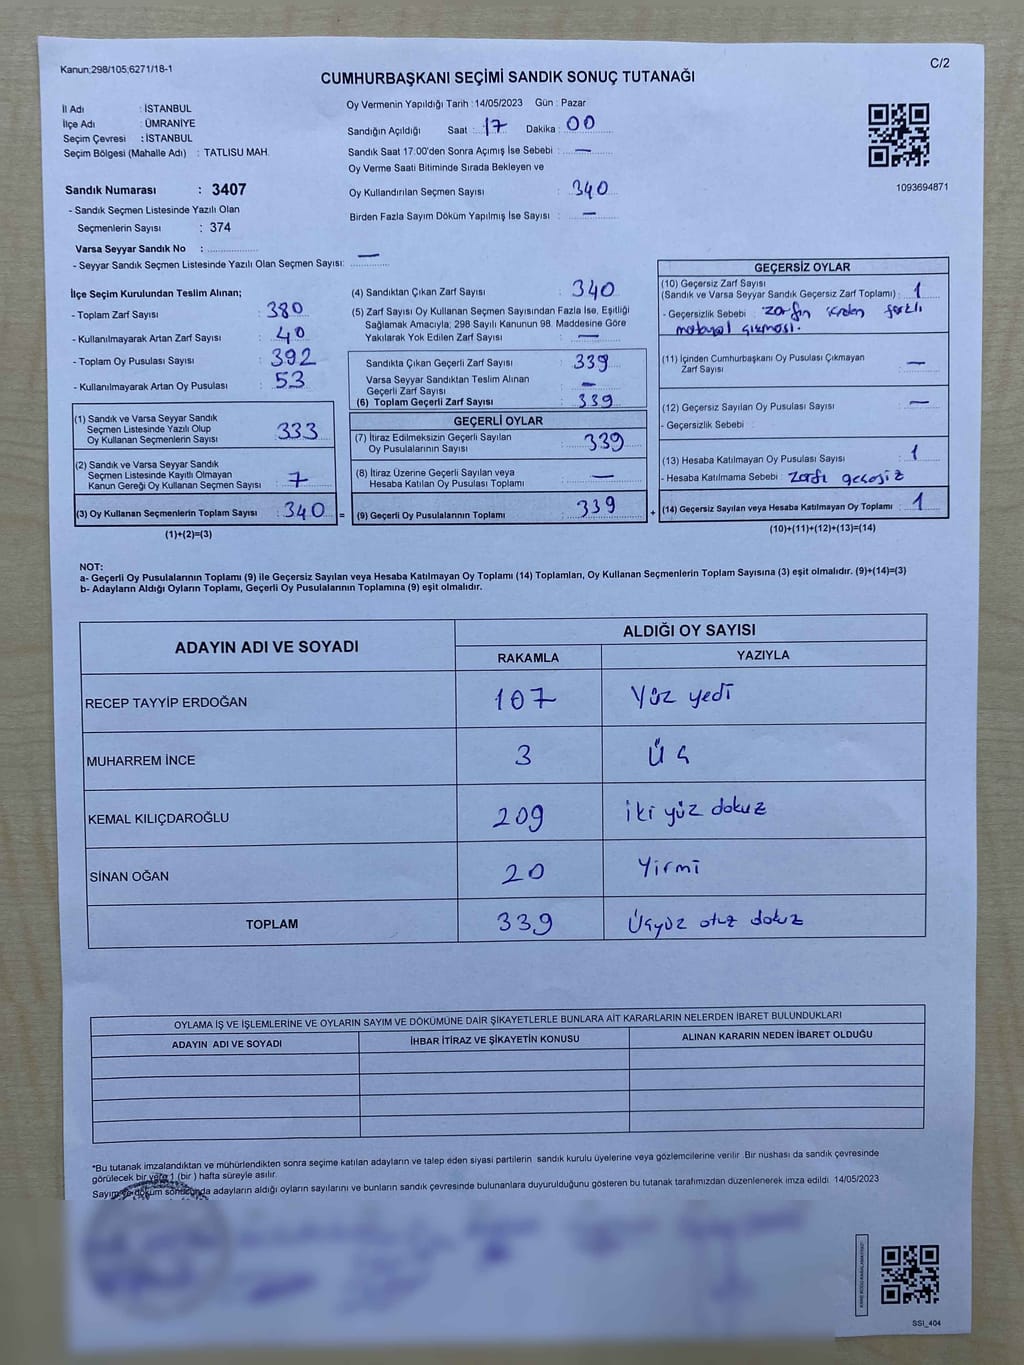 Kanun;298/105,6271/18-1
C/2
CUMHURBAŞKANI SEÇİMİ SANDIK SONUÇ TUTANAĞI
İl Adı : İSTANBUL
İlçe Adı : ÜMRANİYE
Seçim Çevresi : İSTANBUL
Seçim Bölgesi (Mahalle Adı) : TATLISU MAH.
Sandık Numarası : 3407
- Sandık Seçmen Listesinde Yazılı Olan
Seçmenlerin Sayısı : 374
Varsa Seyyar Sandık No :
- Seyyar Sandık Seçmen Listesinde Yazılı Olan Seçmen Sayısı: —
Oy Vermenin Yapıldığı Tarih : 14/05/2023 Gün : Pazar
Sandığın Açıldığı Saat : 17 Dakika : 00
Sandık Saat 17:00'den Sonra Açımış İse Sebebi : —
Oy Verme Saati Bitiminde Sırada Bekleyen ve
Oy Kullandırılan Seçmen Sayısı : 340
Birden Fazla Sayım Döküm Yapılmış İse Sayısı : —
1093694871
İlçe Seçim Kurulundan Teslim Alınan;
- Toplam Zarf Sayısı : 380
- Kullanılmayarak Artan Zarf Sayısı : 40
- Toplam Oy Pusulası Sayısı : 392
- Kullanılmayarak Artan Oy Pusulası : 53
(1) Sandık ve Varsa Seyyar Sandık
Seçmen Listesinde Yazılı Olup
Oy Kullanan Seçmenlerin Sayısı : 333
(2) Sandık ve Varsa Seyyar Sandık
Seçmen Listesinde Kayıtlı Olmayan
Kanun Gereği Oy Kullanan Seçmen Sayısı : 7
(3) Oy Kullanan Seçmenlerin Toplam Sayısı : 340 =
(1)+(2)=(3)
(4) Sandıktan Çıkan Zarf Sayısı : 340
(5) Zarf Sayısı Oy Kullanan Seçmen Sayısından Fazla İse, Eşitliği
Sağlamak Amacıyla; 298 Sayılı Kanunun 98. Maddesine Göre
Yakılarak Yok Edilen Zarf Sayısı : —
Sandıkta Çıkan Geçerli Zarf Sayısı : 339
Varsa Seyyar Sandıktan Teslim Alınan
Geçerli Zarf Sayısı : —
(6) Toplam Geçerli Zarf Sayısı : 339
GEÇERLİ OYLAR
(7) İtiraz Edilmeksizin Geçerli Sayılan
Oy Pusulalarının Sayısı : 339
(8) İtiraz Üzerine Geçerli Sayılan veya
Hesaba Katılan Oy Pusulası Toplamı : —
(9) Geçerli Oy Pusulalarının Toplamı : 339 +
GEÇERSİZ OYLAR
(10) Geçersiz Zarf Sayısı
(Sandık ve Varsa Seyyar Sandık Geçersiz Zarf Toplamı) : 1
- Geçersizlik Sebebi : zarfın içinden farklı
materyal çıkması.
(11) İçinden Cumhurbaşkanı Oy Pusulası Çıkmayan
Zarf Sayısı : —
(12) Geçersiz Sayılan Oy Pusulası Sayısı : —
- Geçersizlik Sebebi :
(13) Hesaba Katılmayan Oy Pusulası Sayısı : 1
- Hesaba Katılmama Sebebi : Zarfı geçersiz
(14) Geçersiz Sayılan veya Hesaba Katılmayan Oy Toplamı : 1
(10)+(11)+(12)+(13)=(14)
NOT:
a- Geçerli Oy Pusulalarının Toplamı (9) ile Geçersiz Sayılan veya Hesaba Katılmayan Oy Toplamı (14) Toplamları, Oy Kullanan Seçmenlerin Toplam Sayısına (3) eşit olmalıdır. (9)+(14)=(3)
b- Adayların Aldığı Oyların Toplamı, Geçerli Oy Pusulalarının Toplamına (9) eşit olmalıdır.
ADAYIN ADI VE SOYADI
ALDIĞI OY SAYISI
RAKAMLA YAZIYLA
RECEP TAYYİP ERDOĞAN 107 Yüz yedi
MUHARREM İNCE 3 Üç
KEMAL KILIÇDAROĞLU 209 iki yüz dokuz
SİNAN OĞAN 20 Yirmi
TOPLAM 339 Üçyüz otuz dokuz
OYLAMA İŞ VE İŞLEMLERİNE VE OYLARIN SAYIM VE DÖKÜMÜNE DAİR ŞİKAYETLERLE BUNLARA AİT KARARLARIN NELERDEN İBARET BULUNDUKLARI
ADAYIN ADI VE SOYADI İHBAR İTİRAZ VE ŞİKAYETİN KONUSU ALINAN KARARIN NEDEN İBARET OLDUĞU
*Bu tutanak imzalandıktan ve mühürlendikten sonra seçime katılan adayların ve talep eden siyasi partilerin sandık kurulu üyelerine veya gözlemcilerine verilir. Bir nüshası da sandık çevresinde
görülecek bir yere 1 (bir) hafta süreyle asılır.
Sayım ve döküm sonucunda adayların aldığı oyların sayılarını ve bunların sandık çevresinde bulunanlara duyurulduğunu gösteren bu tutanak tarafımızdan düzenlenerek imza edildi. 14/05/2023
SSI_404